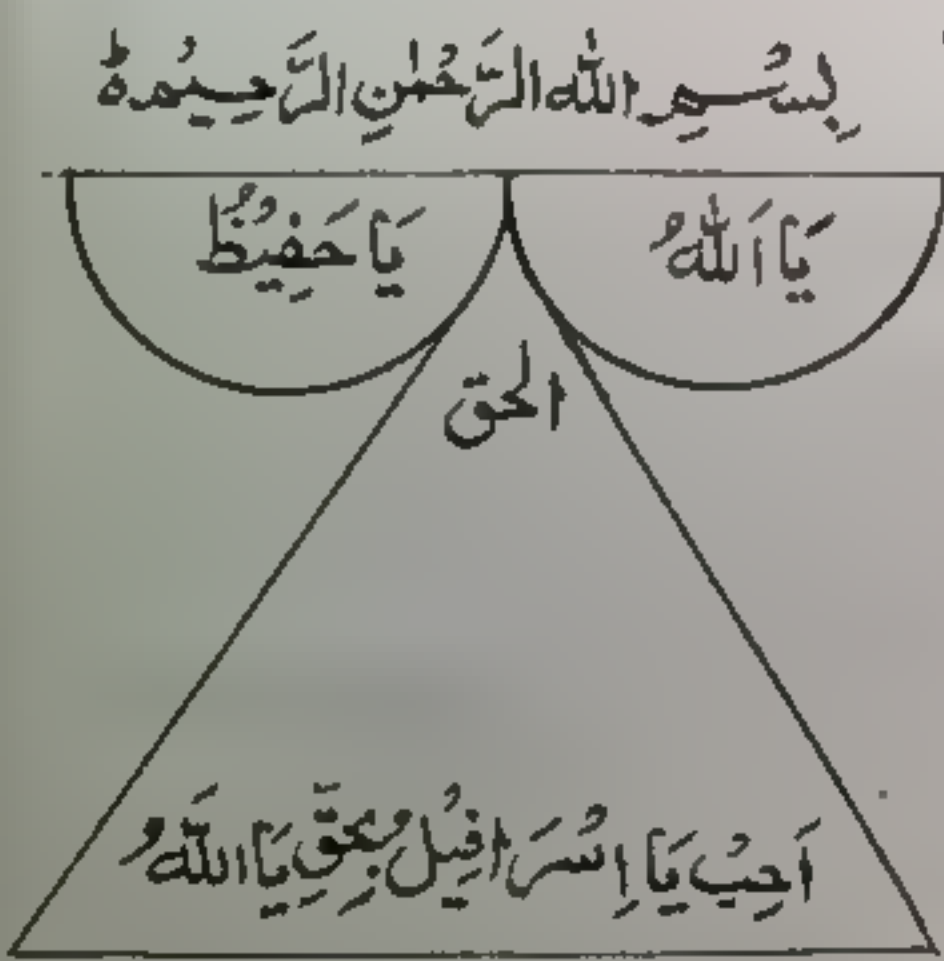 بِسْمِ اللهِ الرَّحْمٰنِ الرَّحِيْمِ ط
يَا اَللهُ يَا حَفِيْظُ
الحق
اَجِبْ يَا اِسْرَافِيْلُ بِحَقِّ يَا اَللهُ